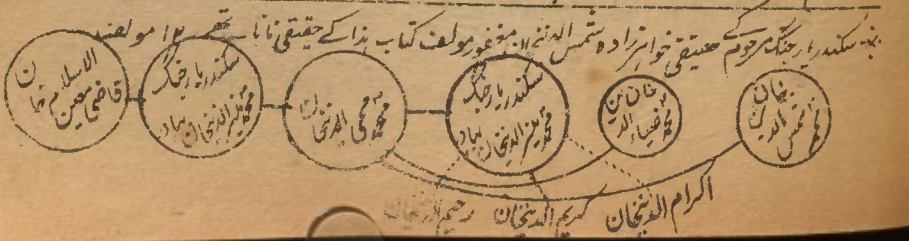 بن سکندر یار جنگ مرحوم کے حقیقی خواہرزادہ شمس الدینخان مغفور مولف کتاب ہذا کے حقیقی نانا تھے
قاضی معین الاسلام خان
سکندر یار جنگ محمد منیر الدینخان بہادر
محمد محی الدینخان
سکندر یار جنگ محمد منیر الدینخان بہادر
محمد ضیاء الدین خان
محمد شمس الدین خان
اکرام الدینخان
کریم الدینخان
رحیم الدینخان